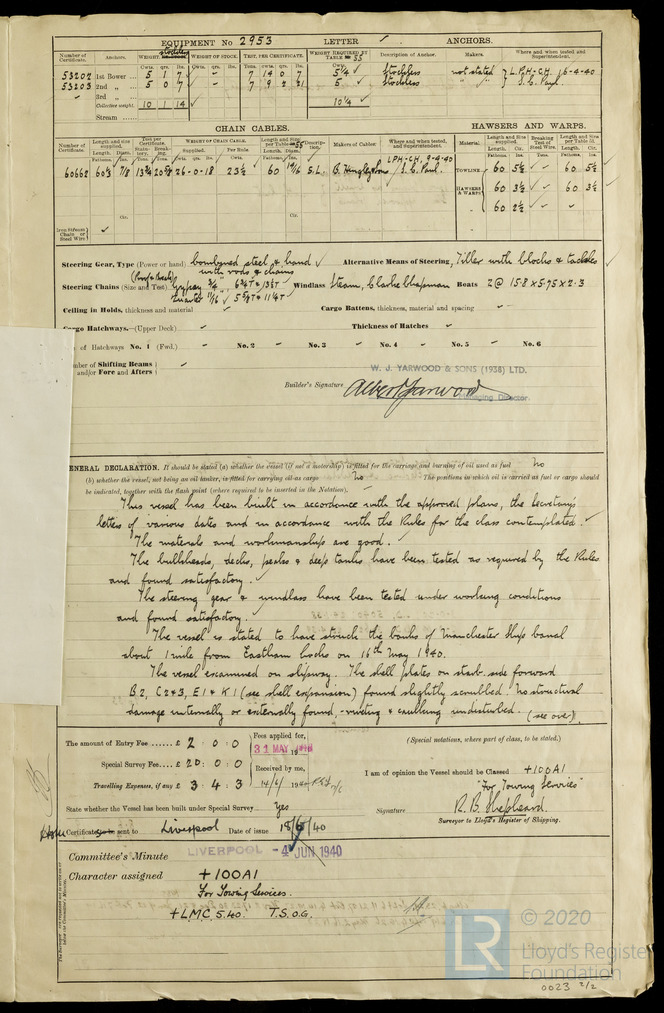 EQUIPMENT No 2953 LETTER ANCHORS.
Number of Certificate. Anchors. WEIGHT, stockless WEIGHT OF STOCK. TEST, PER CERTIFICATE. WEIGHT REQUIRED BY TABLE 55 Description of Anchor. Makers. Where and when tested and Superintendent.
Cwts. qrs. lbs. Cwts. qrs. lbs. Tons. cwts. qrs. lbs. Cwts.
53202 1st Bower ... 5 1 7 - - 7 14 0 7 5¼ Stockless not stated L.P.H-CH. 16-4-40
53203 2nd „ ... 5 0 7 - - 7 9 2 21 5 Stockless " " J. C. Paul.
3rd „ ...
Collective weight. 10 1 14 10¼
Stream ...
CHAIN CABLES. HAWSERS AND WARPS.
Number of Certificate. Length and size supplied. Test per Certificate. WEIGHT OF CHAIN CABLE. Length and Size per Table 55 Description. Makers of Cables. Where and when tested, and Superintendent. Material. Length and Size supplied. Breaking Test of Steel Wire. Length and Size per Table 55.
Fathoms. Supplied. Per Rule. Fathoms.
60662 60½ 7/8 13¾ 20⅝ 26-0-18 23½ 60 14/16 S.L. LPH-CH. 9-4-40 J. C. Paul. TOWLINE 60 5½ 60 5½
HAWSERS & WARPS 60 3½ 60 3¼
60 2½
Iron Stream Chain or Steel Wire
Steering Gear, Type (Power or hand) combined steel & hand with rods & chains Alternative Means of Steering, Tiller with blocks & tackles
Steering Chains (Size and Test) (Proof & Break) Gypsey 3/4", 6¾T & 13½T Windlass Steam, Clarke Chapman Boats 2 @ 15·8 x 5·75 x 2·3
Quarter 11/16" 5⅝T & 11¼T
Ceiling in Holds, thickness and material Cargo Battens, thickness, material and spacing
Cargo Hatchways.—(Upper Deck) Thickness of Hatches
of Hatchways No. 1 (Fwd.) No. 2 No. 3 No. 4 No. 5 No. 6
mber of Shifting Beams
and/or Fore and Afters
W. J. YARWOOD & SONS (1938) LTD.
Builder's Signature Albert Yarwood
Managing Director.
GENERAL DECLARATION. It should be stated (a) whether the vessel (if not a motorship) is fitted for the carriage and burning of oil used as fuel No
(b) whether the vessel, not being an oil tanker, is fitted for carrying oil as cargo No The positions in which oil is carried as fuel or cargo should
be indicated, together with the flash point (where required to be inserted in the Notation).
This vessel has been built in accordance with the approved plans, the Secretary's
letters of various dates and in accordance with the Rules for the class contemplated.
The materials and workmanship are good.
The bulkheads, decks, peaks & deep tanks have been tested as required by the Rules
and found satisfactory.
The steering gear & windlass have been tested under working conditions
and found satisfactory.
The vessel is stated to have struck the banks of Manchester Ship Canal
about 1 mile from Eastham Locks on 16th May 1940.
The vessel examined on slipway. The shell plates on starb side forward
B2, C2&3, E1 & K1 (see shell expansion) found slightly scrubbed. No structural
damage internally or externally found, riveting & caulking undisturbed. (see over)
The amount of Entry Fee ...... £ 2 : 0 : 0 Fees applied for, (Special notations, where part of class, to be stated.)
31 MAY 1940
Special Survey Fee.... £ 20 : 0 : 0 Received by me, I am of opinion the Vessel should be Classed +100A1
Travelling Expenses, if any £ 3 : 4 : 3 14/6/ 1940 "For Towing Services"
State whether the Vessel has been built under Special Survey Yes Signature R. B. Shepheard.
Surveyor to Lloyd's Register of Shipping.
Certificate sent to Liverpool Date of issue 18/6/40
LIVERPOOL - 4 JUN 1940
Committee's Minute
Character assigned +100A1
For Towing Services.
+LMC 5.40. T.S.O.G.
LR © 2020
Lloyd's Register
Foundation
0023 2/2